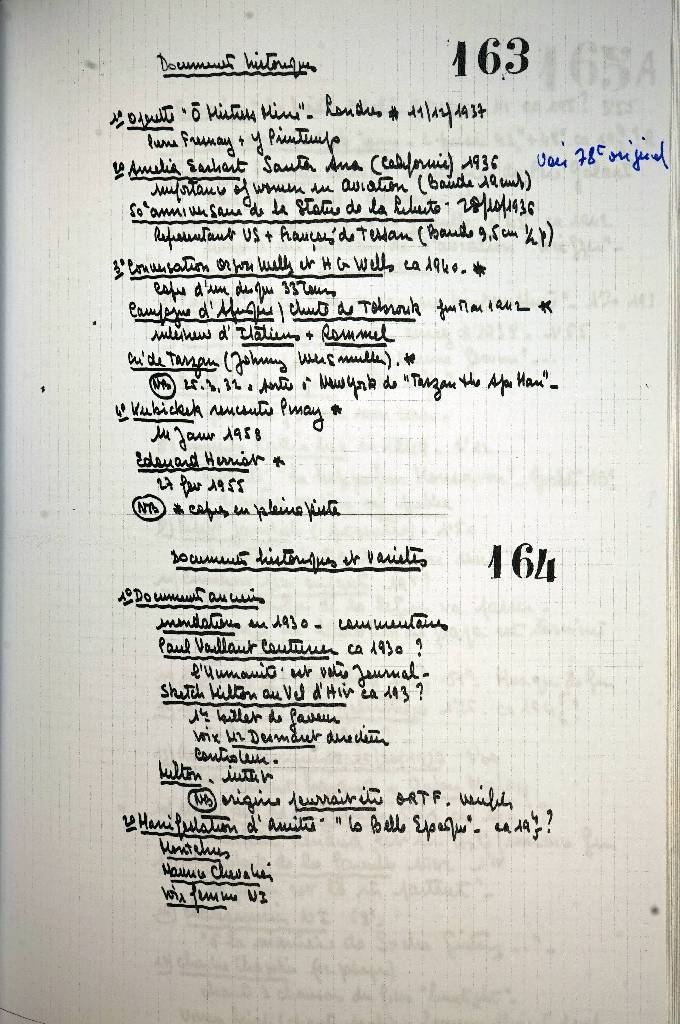 Documents historiques 163
1º Opérette "Ô Mistress Mine" - Londres * 11/12/1937
Pierre Fresnay + Y Printemps
2º Amelia Earhart Santa Ana (Californie) 1936 voir 78t original
importance of women in aviation (Bande 19 cm/s)
50e anniversaire de la Statue de la Liberté - 28/10/1936
Représentant US + français de Tessan (Bande 9,5 cm ½ p)
3º Conversation Orson Wells et HG Wells ca 1940. *
copie d'un disque 33 tours
Campagne d'Afrique / chute de Tobrouk 1942 *
intérieur d'Italiens + Rommel
Cri de Tarzan (Johnny Weismuller). *
NB 25.3.32. sortie à New York de "Tarzan the Ape Man" -
4º Kubichek rencontre Pinay *
14 Janv 1958
Edouard Herriot *
27 fev 1955
NB * copies en pleine piste
Documents historiques et Variétés 164
1º Documents anciens
inondations en 1930 - commentaires
Paul Vaillant Couturier ca 1930 ?
l'Humanité est votre Journal -
Sketch Milton au Vel d'Hiv ca 193 ?
billet de faveur
voix Mr Desmaret directeur
controleur -
Milton.
NB origine pourrait être ORTF.
2º Manifestation d'amitié - "la Belle Epoque" - ca 19 ?
Montehus
Maurice Chevalier
voix femme NI